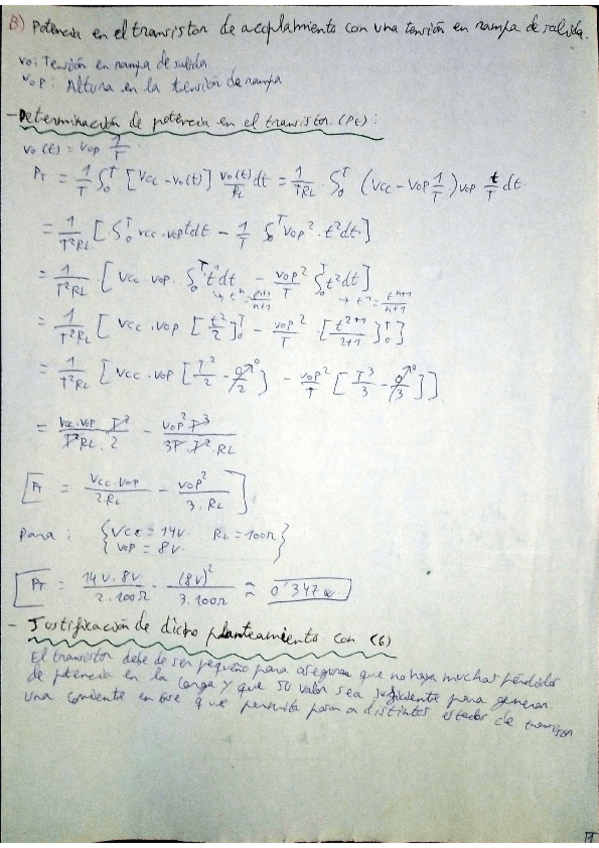 B) Potencia en el transistor de acoplamiento con una tensión en rampa de salida.
vo: Tensión en rampa de salida
vop: Altura en la tensión de rampa
- Determinación de potencia en el transistor. (Pt):
vo(t) = vop 1/T
PT = 1/T ∫₀ᵀ [Vcc - vo(t)] vo(t)/RL dt = 1/TRL ∫₀ᵀ (Vcc - vop 1/T) vop t/T dt.
= 1/T²RL [ ∫₀ᵀ vcc · vop t dt - 1/T ∫₀ᵀ vop² · t² dt ]
= 1/T²RL [ Vcc · vop · ∫₀ᵀ t¹ dt - vop²/T ∫₀ᵀ t² dt ]
↳ tⁿ = tⁿ⁺¹/n+1 → tⁿ = tⁿ⁺¹/n+1
= 1/T²RL [ Vcc · vop [t²/2]₀ᵀ - vop²/T · [t²⁺¹/2+1]₀ᵀ ]
= 1/T²RL [ Vcc · vop [T²/2 - 0/2] - vop²/T [T³/3 - 0/3] ]
= Vcc · vop T²/T²RL · 2 - vop² T³/3T · T² · RL
[ PT = Vcc · vop/2RL - vop²/3 · RL ]
para: { Vcc = 14V. RL = 100Ω }
{ vop = 8V.
[ PT = 14V · 8V/2 · 100Ω - (8V)²/3 · 100Ω ≈ 0'347 w. ]
- Justificación de dicho planteamiento con (6)
El transistor debe de ser pequeño para asegurar que no haya muchas pérdidas
de potencia en la carga y que su valor sea suficiente para generar
una corriente en base que permita para a distintos estados de